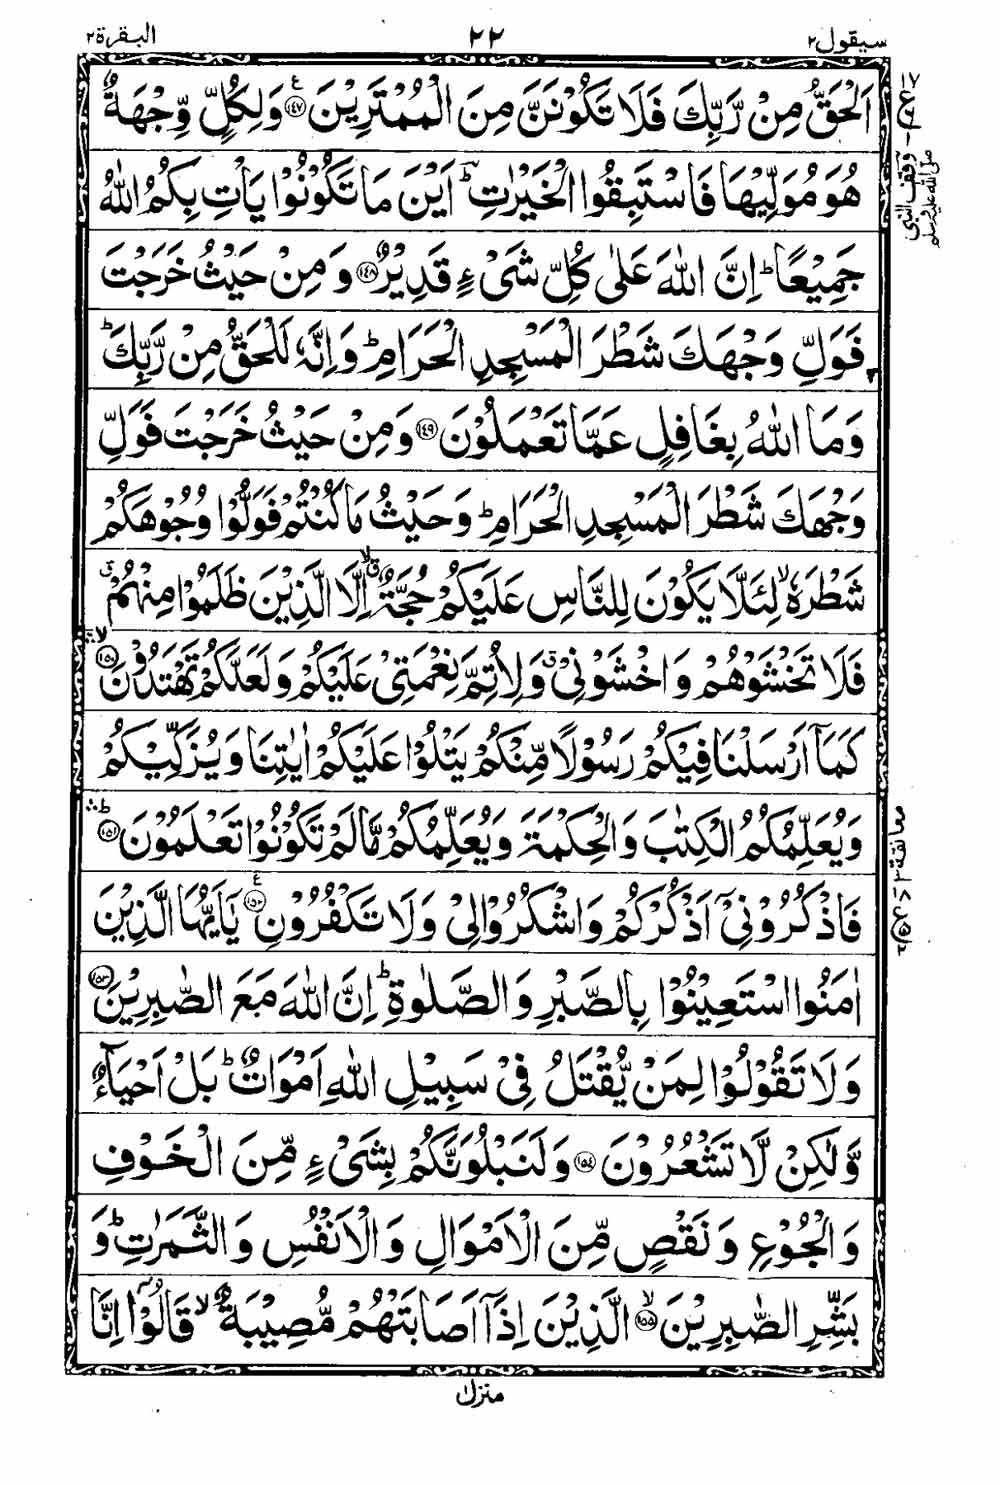 سیقول ٢
٢٢
البقرة ٢
اَلْحَقُّ مِنْ رَّبِّكَ فَلَا تَكُوْنَنَّ مِنَ الْمُمْتَرِيْنَ ؑ ﴿١٤٧﴾ وَلِكُلٍّ وِّجْهَةٌ
هُوَ مُوَلِّيْهَا فَاسْتَبِقُوا الْخَيْرٰتِ ؕ اَيْنَ مَا تَكُوْنُوْا يَاْتِ بِكُمُ اللّٰهُ
جَمِيْعًا ؕ اِنَّ اللّٰهَ عَلٰى كُلِّ شَىْءٍ قَدِيْرٌ ﴿١٤٨﴾ وَمِنْ حَيْثُ خَرَجْتَ
فَوَلِّ وَجْهَكَ شَطْرَ الْمَسْجِدِ الْحَرَامِ ؕ وَاِنَّهٗ لَلْحَقُّ مِنْ رَّبِّكَ ؕ
وَمَا اللّٰهُ بِغَافِلٍ عَمَّا تَعْمَلُوْنَ ﴿١٤٩﴾ وَمِنْ حَيْثُ خَرَجْتَ فَوَلِّ
وَجْهَكَ شَطْرَ الْمَسْجِدِ الْحَرَامِ ؕ وَحَيْثُ مَا كُنْتُمْ فَوَلُّوْا وُجُوْهَكُمْ
شَطْرَهٗ ۙ لِئَلَّا يَكُوْنَ لِلنَّاسِ عَلَيْكُمْ حُجَّةٌ ۙق اِلَّا الَّذِيْنَ ظَلَمُوْا مِنْهُمْ ق
فَلَا تَخْشَوْهُمْ وَاخْشَوْنِىْ ق وَلِاُتِمَّ نِعْمَتِىْ عَلَيْكُمْ وَلَعَلَّكُمْ تَهْتَدُوْنَ ۙۛ ﴿١٥٠﴾
كَمَآ اَرْسَلْنَا فِيْكُمْ رَسُوْلًا مِّنْكُمْ يَتْلُوْا عَلَيْكُمْ اٰيٰتِنَا وَيُزَكِّيْكُمْ
وَيُعَلِّمُكُمُ الْكِتٰبَ وَالْحِكْمَةَ وَيُعَلِّمُكُمْ مَّا لَمْ تَكُوْنُوْا تَعْلَمُوْنَ ؕۛ ﴿١٥١﴾
فَاذْكُرُوْنِىْٓ اَذْكُرْكُمْ وَاشْكُرُوْا لِىْ وَلَا تَكْفُرُوْنِ ؑ ﴿١٥٢﴾ يٰٓاَيُّهَا الَّذِيْنَ
اٰمَنُوا اسْتَعِيْنُوْا بِالصَّبْرِ وَالصَّلٰوةِ ؕ اِنَّ اللّٰهَ مَعَ الصّٰبِرِيْنَ ﴿١٥٣﴾
وَلَا تَقُوْلُوْا لِمَنْ يُّقْتَلُ فِىْ سَبِيْلِ اللّٰهِ اَمْوَاتٌ ؕ بَلْ اَحْيَآءٌ
وَّلٰكِنْ لَّا تَشْعُرُوْنَ ﴿١٥٤﴾ وَلَنَبْلُوَنَّكُمْ بِشَىْءٍ مِّنَ الْخَوْفِ
وَالْجُوْعِ وَنَقْصٍ مِّنَ الْاَمْوَالِ وَالْاَنْفُسِ وَالثَّمَرٰتِ ؕ وَ
بَشِّرِ الصّٰبِرِيْنَ ۙ ﴿١٥٥﴾ الَّذِيْنَ اِذَآ اَصَابَتْهُمْ مُّصِيْبَةٌ ۙ قَالُوْٓا اِنَّا
١٧
وقف النبی
صلی الله علیه وسلم
معانقة ٣
منزل ١